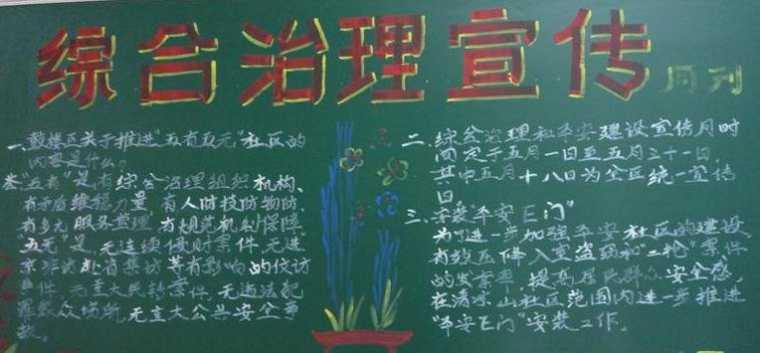 综合治理宣传 月刊
一、鼓楼区关于推进"五有五无"社区的
内容是什么。
答"五有"是有综合治理组织机构、
有矛盾维稳力量 有人防技防物防
有多元服务管理 有规范机制保障
五无"是 无连续侵财案件 无进
京非访赴省集访等有影响的信访
事件 无重大民转案件 无违法犯
罪群众 无重大公共安全事
故。
二、综合治理和平安建设宣传月时
间定于五月一日至五月三十一日,
其中五月十八日为全区统一宣传
日。
三、安装"平安E门"
为了进一步加强平安社区的建设
有效压降入室盗窃和"二轮"案件
的发案率,提高居民群众安全感,
在清凉山社区范围内进一步推进
"平安E门"安装工作。